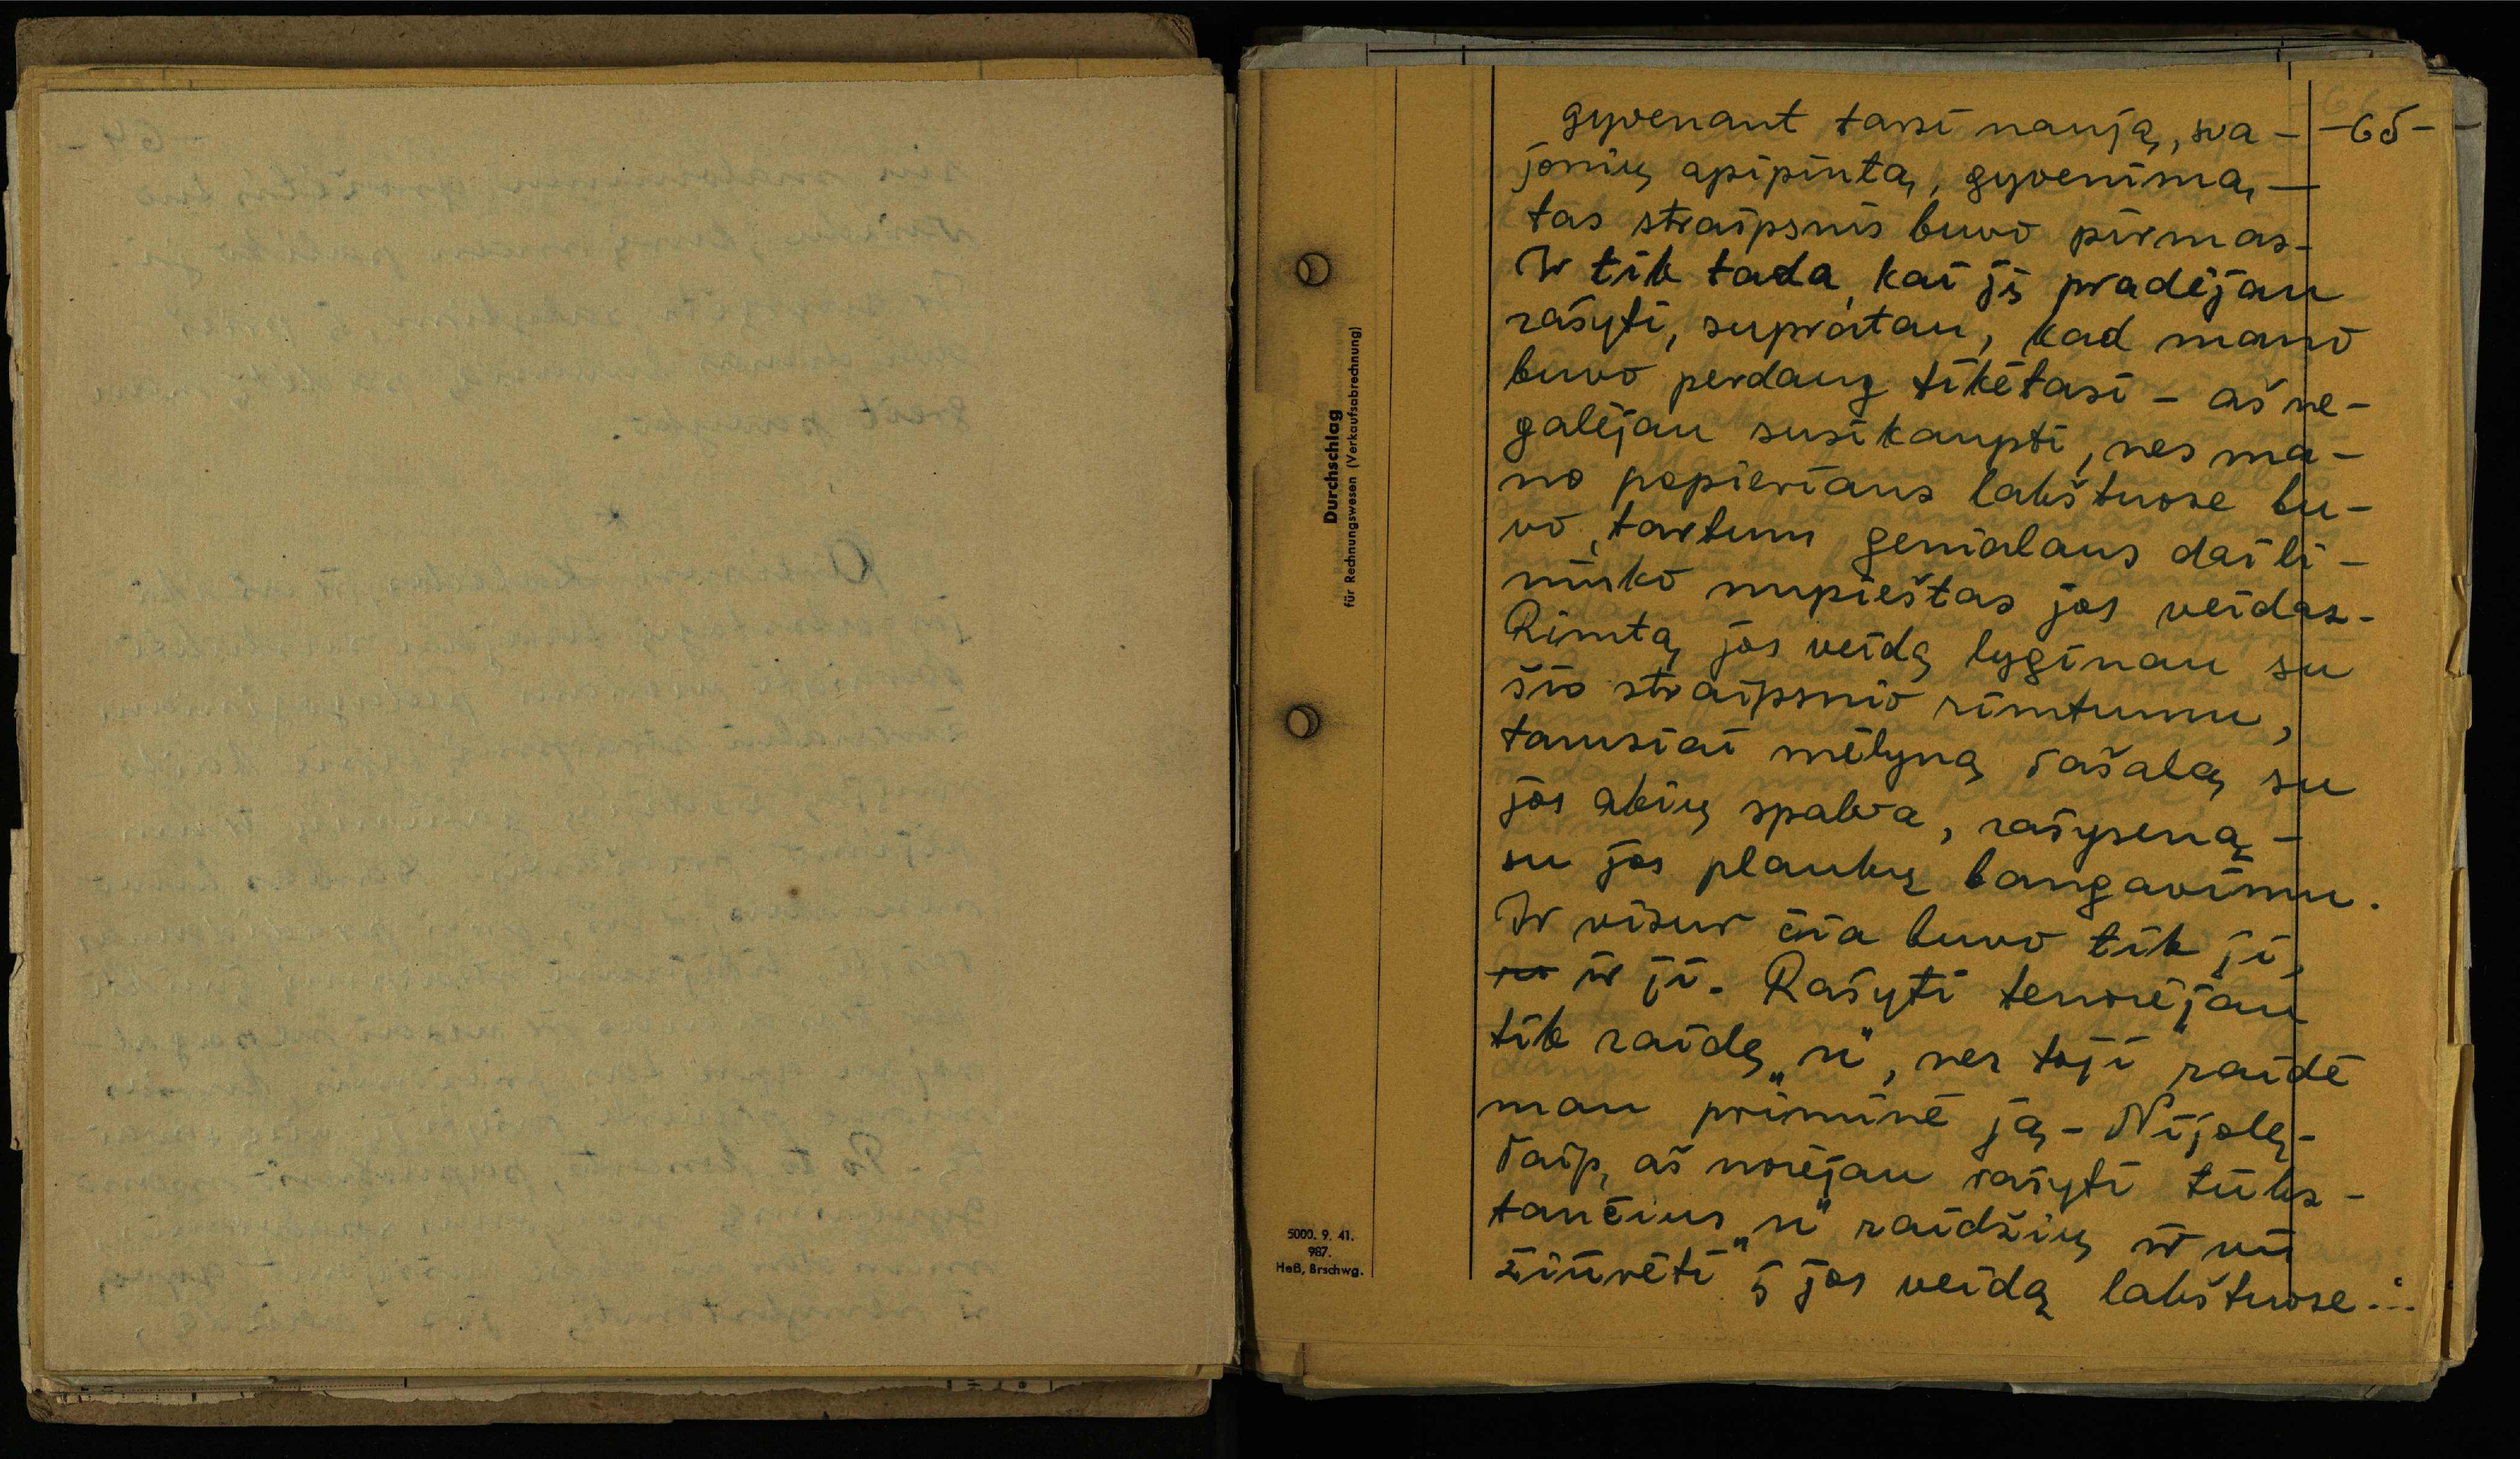 -65-
gyvenant tarsi nauja, sva-
jonių apipintą, gyvenimą, —
tas straipsnis buvo pirmas.
Ir tik tada, kai jį pradėjau
rašyti, supratau, kad mano
buvo perdaug tikėtasi - aš ne-
galėjau susikaupti, nes ma-
no popieriaus lakštuose bu-
vo, tartum genialaus daili-
ninko nupieštas jos veidas.
Rimtą jos veidą lyginau su
šio straipsnio rimtumu,
tamsiai mėlyną rašalą su
jos akių spalva, rašyseną -
su jos plaukų bangavimu.
Ir visur čia buvo tik ji,
ir ji. Rašyti tenorėjau
tik raidę „n“, nes toji raidė
man priminė ją - Nijolę.
Taip, aš norėjau rašyti tūks-
tančius „n“ raidžių ir vis
žiūrėti į jos veidą lakštuose...
Durchschlag
für Rechnungswesen (Verkaufsabrechnung)
5000. 9. 41.
987.
Heß, Brschwg.